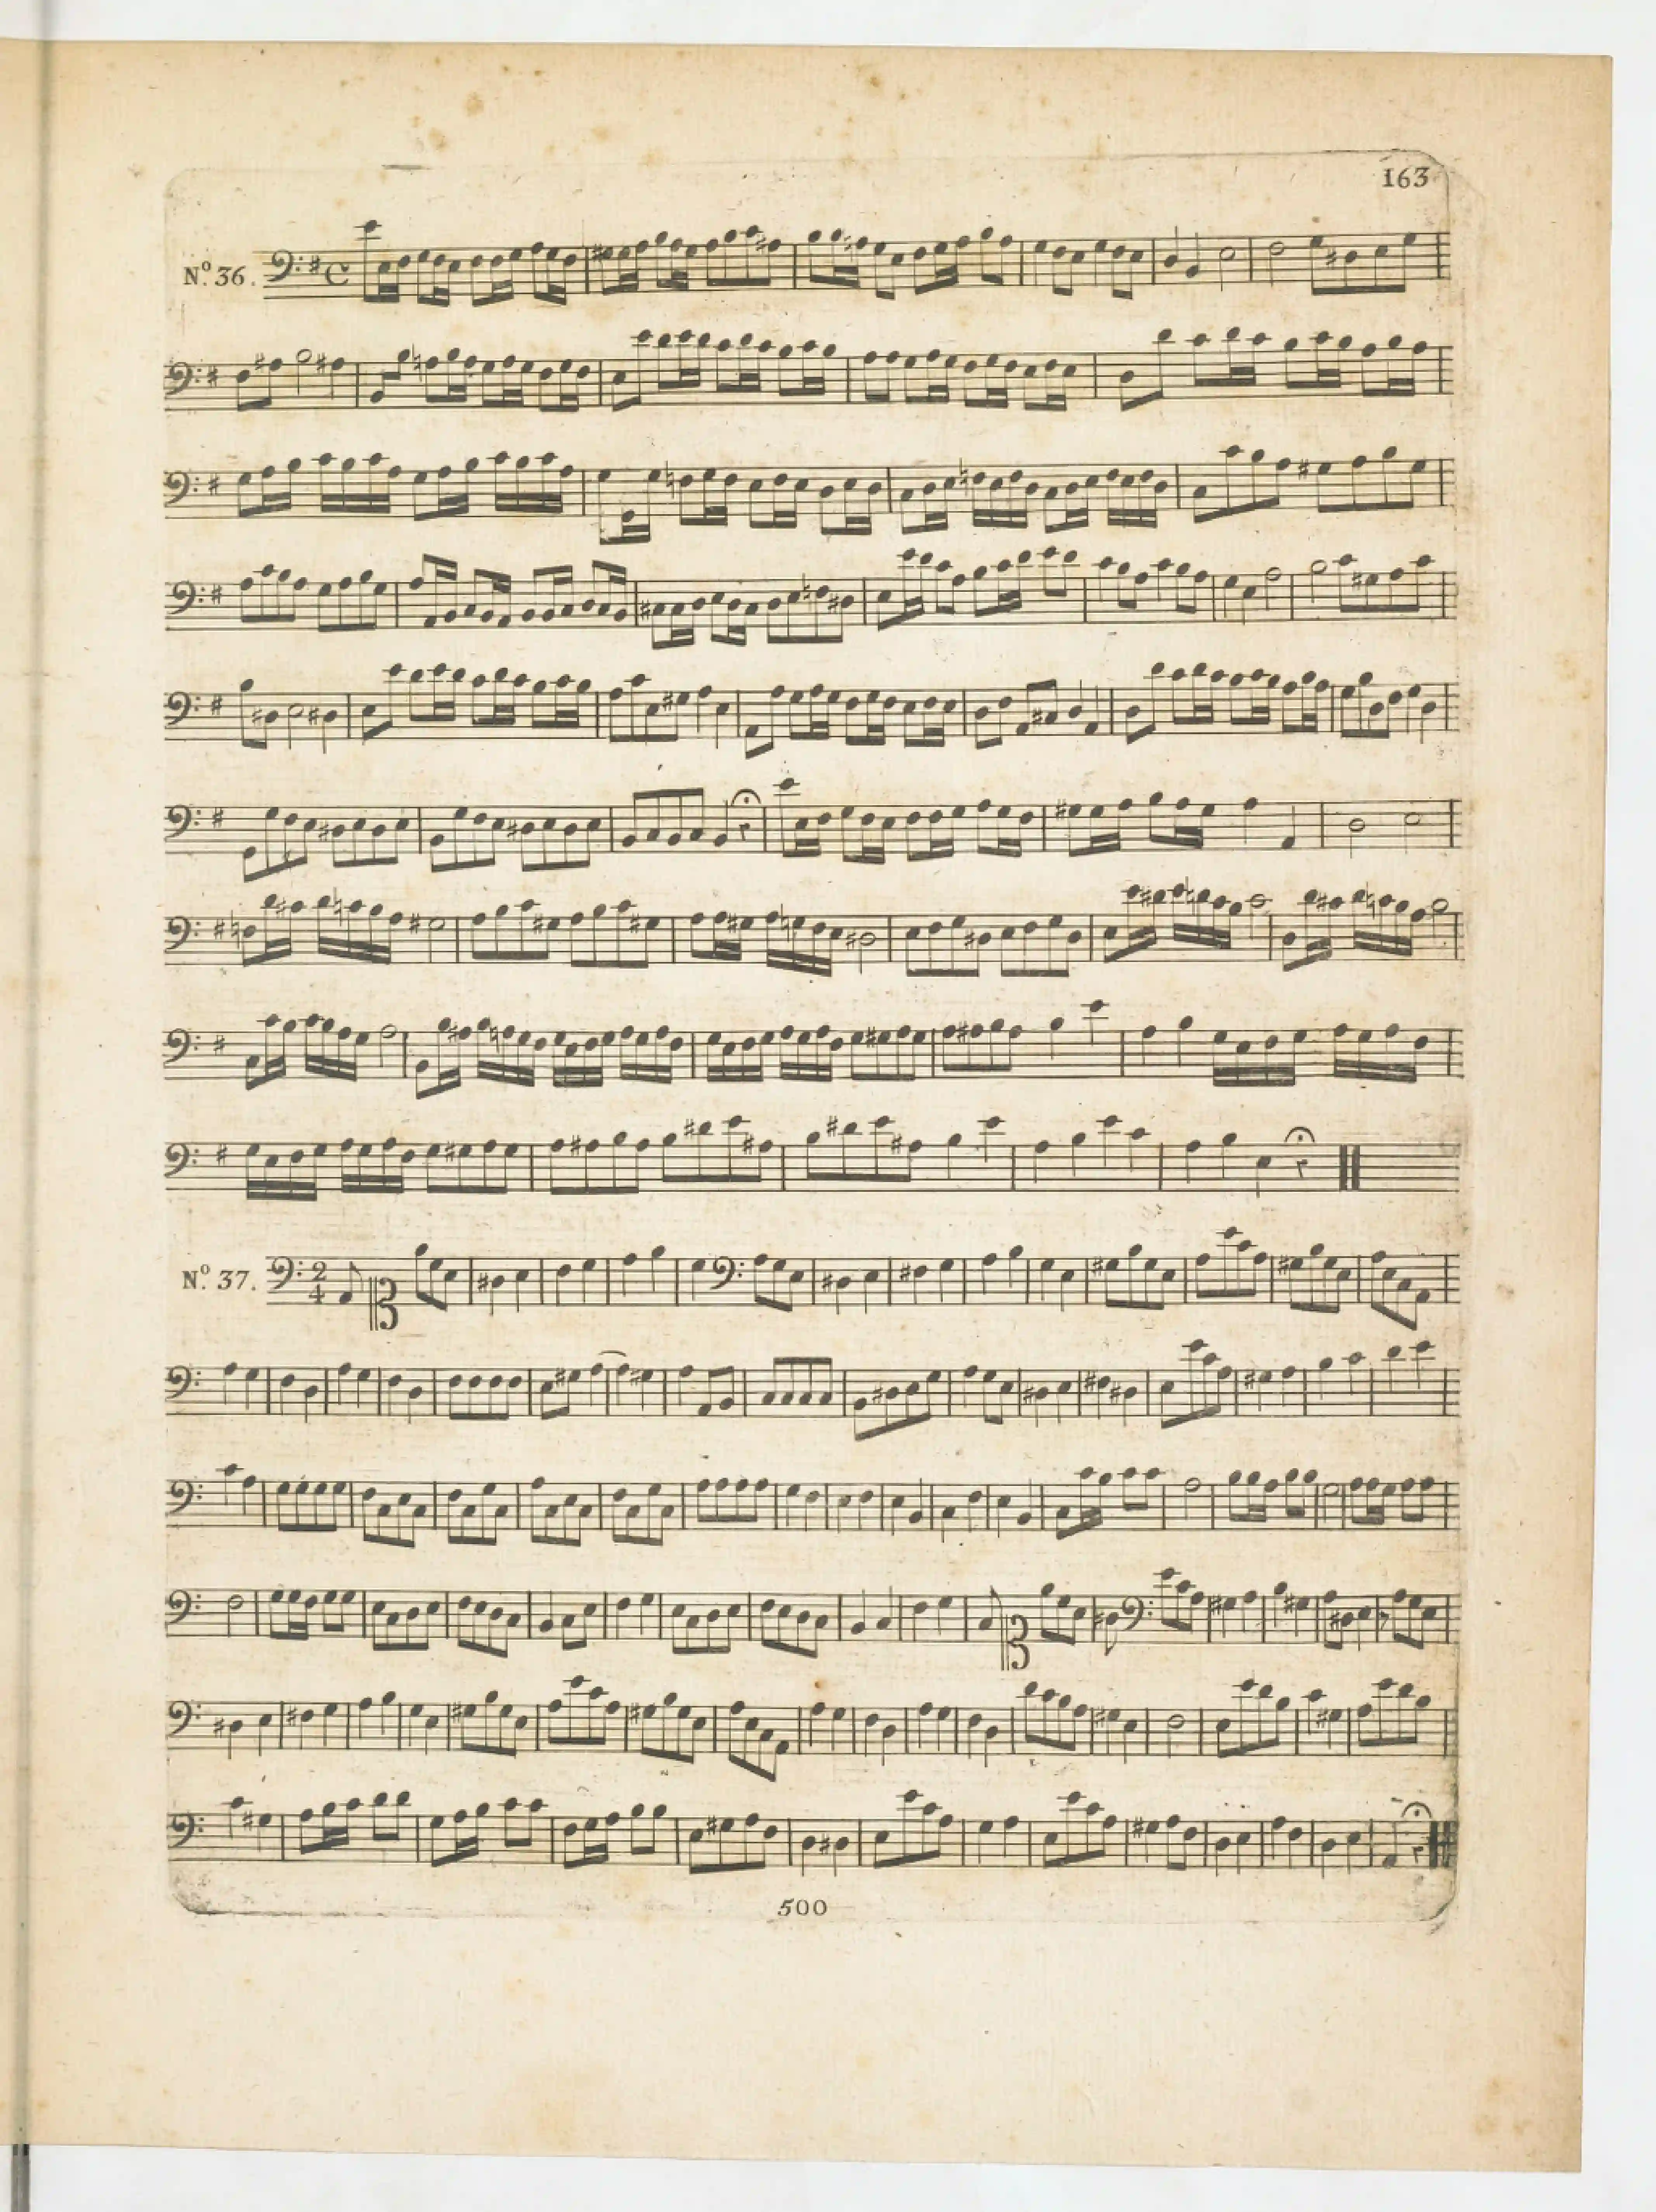 163
Nº. 36.
Nº. 37.
2
4
500